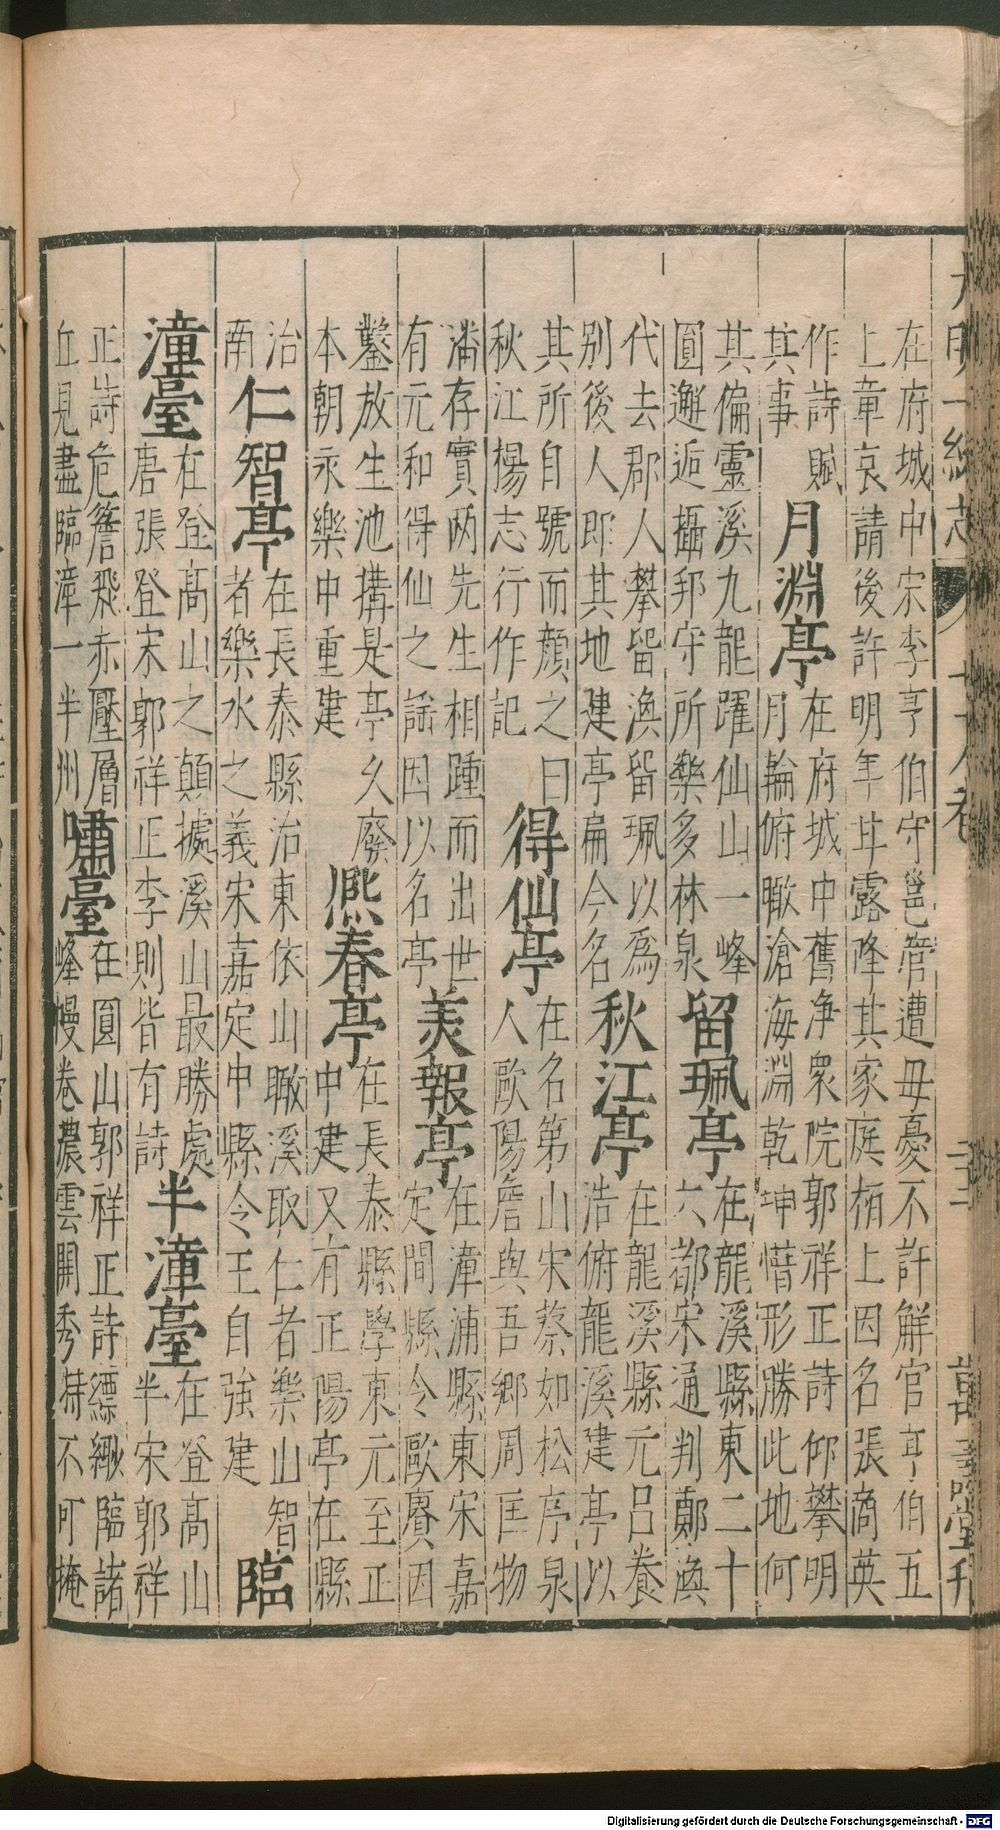 大明一統志 七十八卷 萬壽堂刊
在府城中宋李亨伯守邕管遭母憂不許解官亨伯五
上章哀請後許明年甘露降其家庭栢上因名張商英
作詩賦
其事
月淵亭
在府城中舊净衆院郭祥正詩仰攀明
月輪俯瞰滄海淵乾坤惜形勝此地何
其偏靈溪九龍躍仙山一峰
圓邂逅攝邦守所樂多林泉
留珮亭
在龍溪縣東二十
六都宋通判鄭渙
代去郡人攀留渙留珮以為
別後人即其地建亭扁今名
秋江亭
在龍溪縣元呂養
浩俯龍溪建亭以
其所自號而顏之曰
秋江楊志行作記
得仙亭
在名第山宋蔡如松序泉
人歐陽詹與吾鄉周匡物
潘存實两先生相踵而出世
有元和得仙之謡因以名亭
美報亭
在漳浦縣東宋嘉
定間縣令歐賡因
鑿放生池搆是亭久廢
本朝永樂中重建
熈春亭
在長泰縣學東元至正
中建又有正陽亭在縣
治
南
仁智亭
在長泰縣治東依山瞰溪取仁者樂山智
者樂水之義宋嘉定中縣令王自強建
臨
漳臺
在登高山之顛據溪山最勝處
唐張登宋郭祥正李則皆有詩
半漳臺
在登高山
半宋郭祥
正詩危簷飛赤壓層
丘見盡臨漳一半州
嘯臺
在圓山郭祥正詩縹緲臨諸
峰幔卷濃雲開秀特不可掩
Digitalisierung gefördert durch die Deutsche Forschungsgemeinschaft - DFG